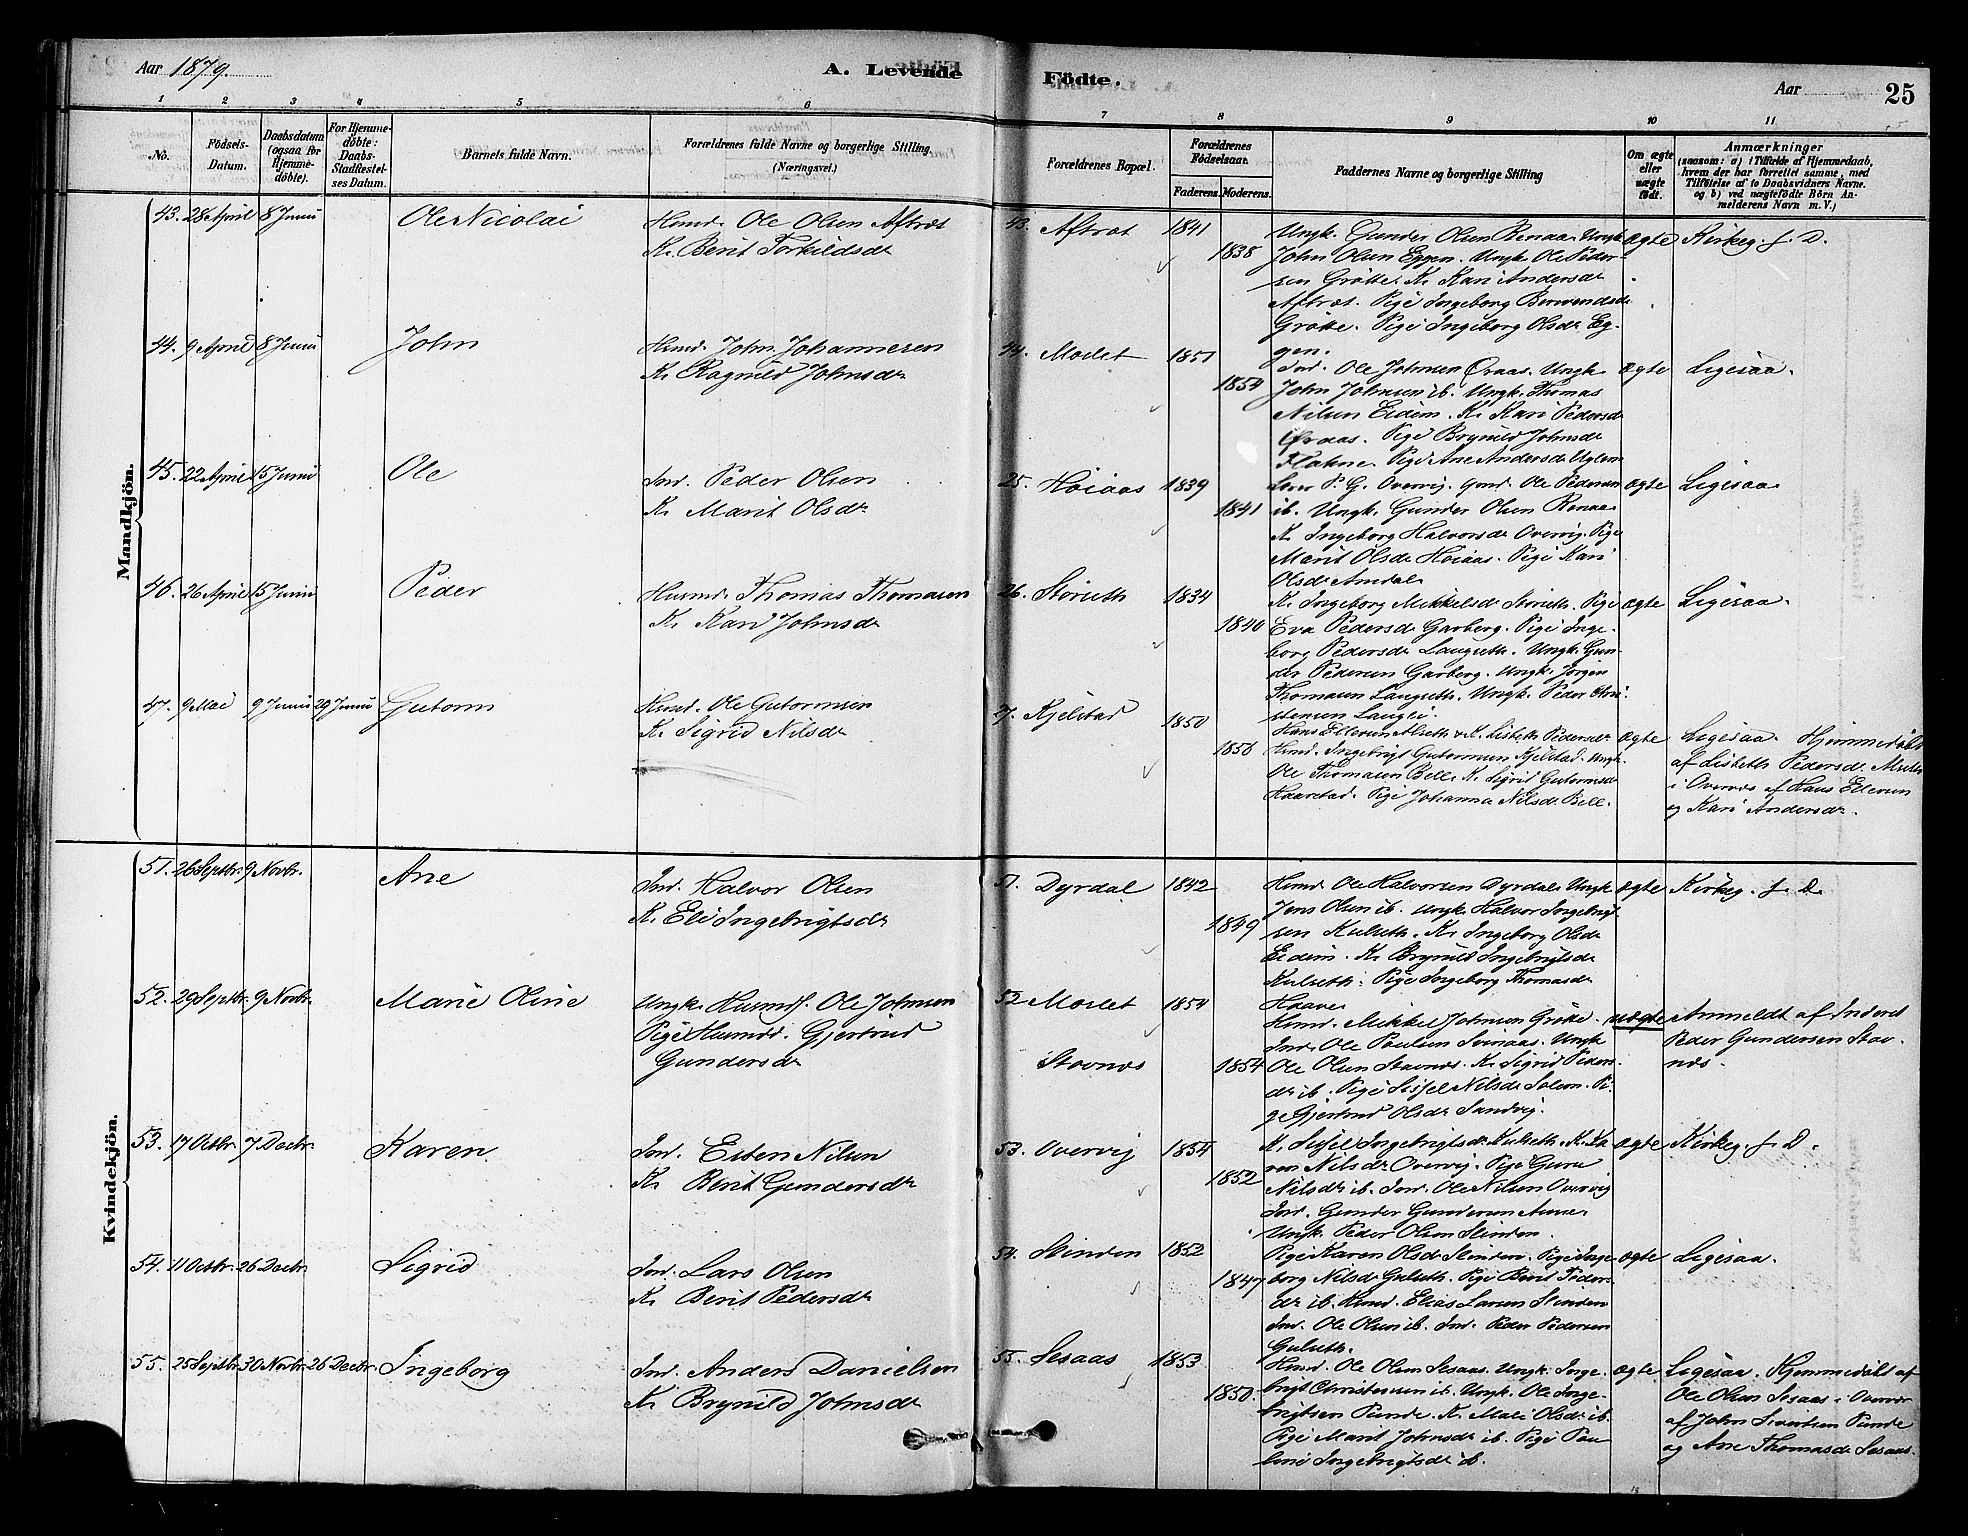 Aar 1879.
A. Levende
Födte.
Aar
25
1 2 3 4 5 6
7 8 9 10 11
No.
Födsels-
Datum.
Daabsdatum
(ogsaa for
Hjemme-
döbte).
For Hjemme-
döbte:
Daabs-
Stadfæstel-
ses Datum.
Barnets fulde Navn.
Forældrenes fulde Navne og borgerlige Stilling
(Næringsvei).
Forældrenes Bopæl.
Forældrenes
Födselsaar.
Faderens. Moderens.
Faddernes Navne og borgerlige Stilling
Om ægte
eller
uægte
födt.
Anmærkninger
(saasom: a) i Tilfælde af Hjemmedaab,
hvem der har forrettet samme, med
Tilföielse af to Daabsvidners Navne.
og b) ved uægtefödte Börn An-
melderens Navn m. V.)
Mandkjön.
43. 28 April 8 Juni Ole Nicolai
Husmd. Ole Olsen Aftret
K. Berit Torkildsdr
43. Aftret 1841
1838
Ungk. Gunder Olsen Renaa. Ungk
John Olsen Eggen. Ungk Ole Peder-
sen Grötte. K. Kari Andersdr
Aftret. Pige Ingeborg Berendsdr
Grötte. Pige Ingeborg Olsdr Eg-
gen.
ægte Kirkeg. f. D.
44. 9 April 8 Juni John
Husmd. John Johannesen
K. Ragnild Johnsdr
44. Moslet 1851
1854
Ind. Ole Johnsen Øraas. Ungk
John Johnsen ib. Ungk. Thomas
Nilsen Eidem. K. Kari Pedersdr
Øraas. Pige Brynild Johnsdr
Flakne. Pige Ane Andersdr
ægte Ligesaa.
45. 22 April 15 Juni Ole
Ind. Peder Olsen
K. Marit Olsdr
25. Høiaas 1839
1841
P. G. Overvig. Ole Pedersen
ib. Ungk. Gunder Olsen Renaa
K. Ingeborg Halvorsdr Overvig. Pige
Marit Olsdr Høiaas. Pige Kari
Olsdr Amdal
ægte Ligesaa
46. 26 April 15 Juni Peder
Husmd. Thomas Thomasen
K. Kari Johnsdr
26. Størseth 1834
1840
K. Ingeborg Mikkelsdr Størseth. Pige
Eva Pedersdr Garberg. Pige Inge-
borg Pedersdr Langseth. Ungk. Gun-
der Pedersen Garberg. Ungk. Jørgen
Thomasen Langseth. Ungk. Peder Chri-
stensen Langli.
ægte Ligesaa.
47. 9 Mai 9 Juni 29 Juni Gutorm
Husmd. Ole Gutormsen
K. Sigrid Nilsdr
27. Kjelstad 1850
1856
Hans Ellevsen Alseth & K. Lisbeth Pedersdr
Husmd. Ingebrigt Gutormsen Kjelstad. Ungk.
Ole Thomasen Bell. K. Sigrid Gutormsdr
Haarstad. Pige Johanna Nilsdr Bell.
ægte Ligesaa. Hjemmedøbt
af Lisbeth Pedersdr Alseth
i Overvær af Hans Ellevsen
og Kari Andersdr.
Kvindekjön.
51. 26 Septbr. 9 Novbr. Ane
Ind. Halvor Olsen
K. Eli Ingebrigtsdr
51. Dyrdal 1842
1849
Husmd. Ole Halvorsen Dyrdal. Ungk
Jens Olsen ib. Ungk. Halvor Ingebrigt-
sen Kulseth. K. Ingeborg Olsdr
Eidem. K. Brynild Ingebrigtsdr
Kulseth. Pige Ingeborg Thomasdr
Haave.
ægte Kirkeg. f. D.
52. 29 Septbr. 9 Novbr. Marie Oline
Ungk. Husmd. Ole Johnsen
Pige Husmd. Gjertrud
Gundersdr
52 Moslet 1854
Stovnes 1854
Husmd. Mikkel Johnsen Grötte.
Ind. Ole Paulsen Sviraas. Ungk
Ole Olsen Stavnes. K. Sigrid Peders-
dr ib. Pige Sissel Nilsdr Solem. Pi-
ge Gjertrud Olsdr Sandvig.
uægte Anmeldt af Inderst
Peder Gundersen Stov-
nes.
53. 17 Octbr. 7 Decbr. Karen
Ind. Esten Nilsen
K. Berit Gundersdr
53. Overvig 1854
1852
K. Sissel Ingebrigtsdr Kulseth. K. Ka-
ren Nilsdr Overvig. Pige Guru
Nilsdr ib. Ind. Ole Nilsen Overvig
Ind. Gunder Gundersen Aune.
Ungk. Peder Olsen Slinden.
ægte Kirkeg. f. D.
54. 11 Octbr. 26 Decbr. Sigrid
Ind. Lars Olsen
K. Berit Pedersdr
54. Slinden 1852
1847
Pige Karen Olsdr Slinden. Pige Inge-
borg Nilsdr Gulseth. Pige Berit Peders-
dr ib. Husmd. Elias Larsen Slinden
Ind. Ole Olsen ib. Ind. Peder Pedersen
Gulseth.
ægte Ligesaa.
55. 25 Septbr. 30 Novbr. 26 Decbr. Ingeborg
Ind. Anders Danielsen
K. Brynild Johnsdr
55. Sesaas 1853
1850.
Husmd. Ole Olsen Sesaas. Ungk. Inge-
brigt Christensen ib. Ungk. Ole Inge-
brigtsen Punde. K. Mali Olsdr ib.
Pige Marit Johnsdr ib. Pige Pau-
line Ingebrigtsdr ib.
ægte Ligesaa. Hjemmedøbt af
Ole Olsen Sesaas i Overvær
af John Sivertsen Punde
og Ane Thomasdr Sesaas.
13